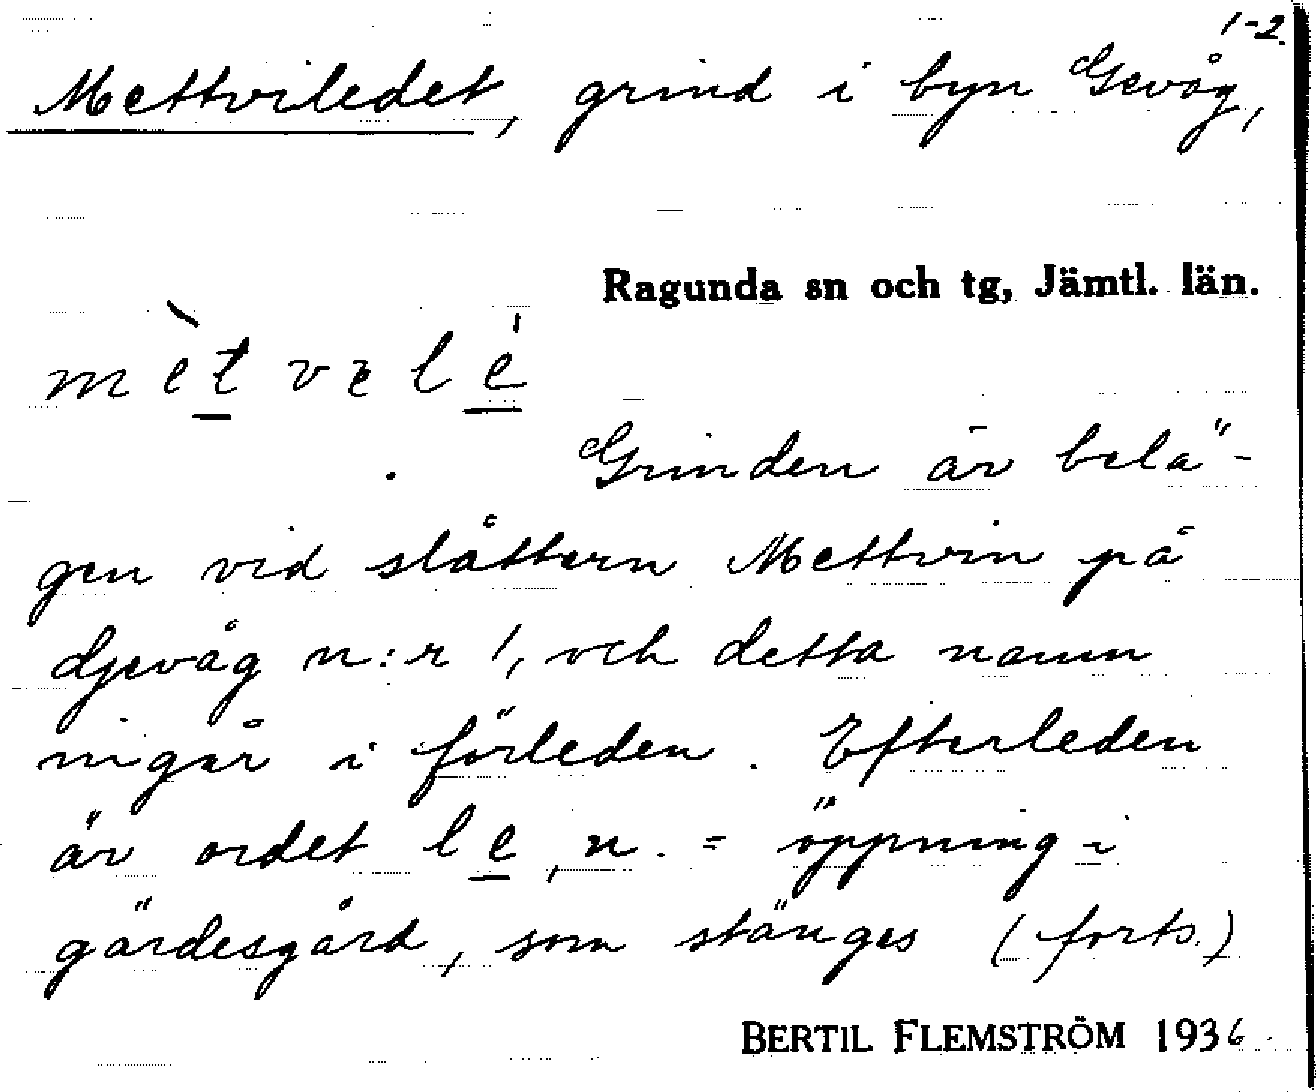 1-2.
Mettviledet, grind i byn Gevåg,
Ragunda sn och tg, Jämtl. län.
mètvelé
Grinden är belä-
gen vid slåttern Mettvin på
Gjevåg n:r 1, och detta namn
ingår i förleden. Efterleden
är ordet le, n. = öppning i
gärdesgård, som stänges (forts.)
BERTIL FLEMSTRÖM 1936